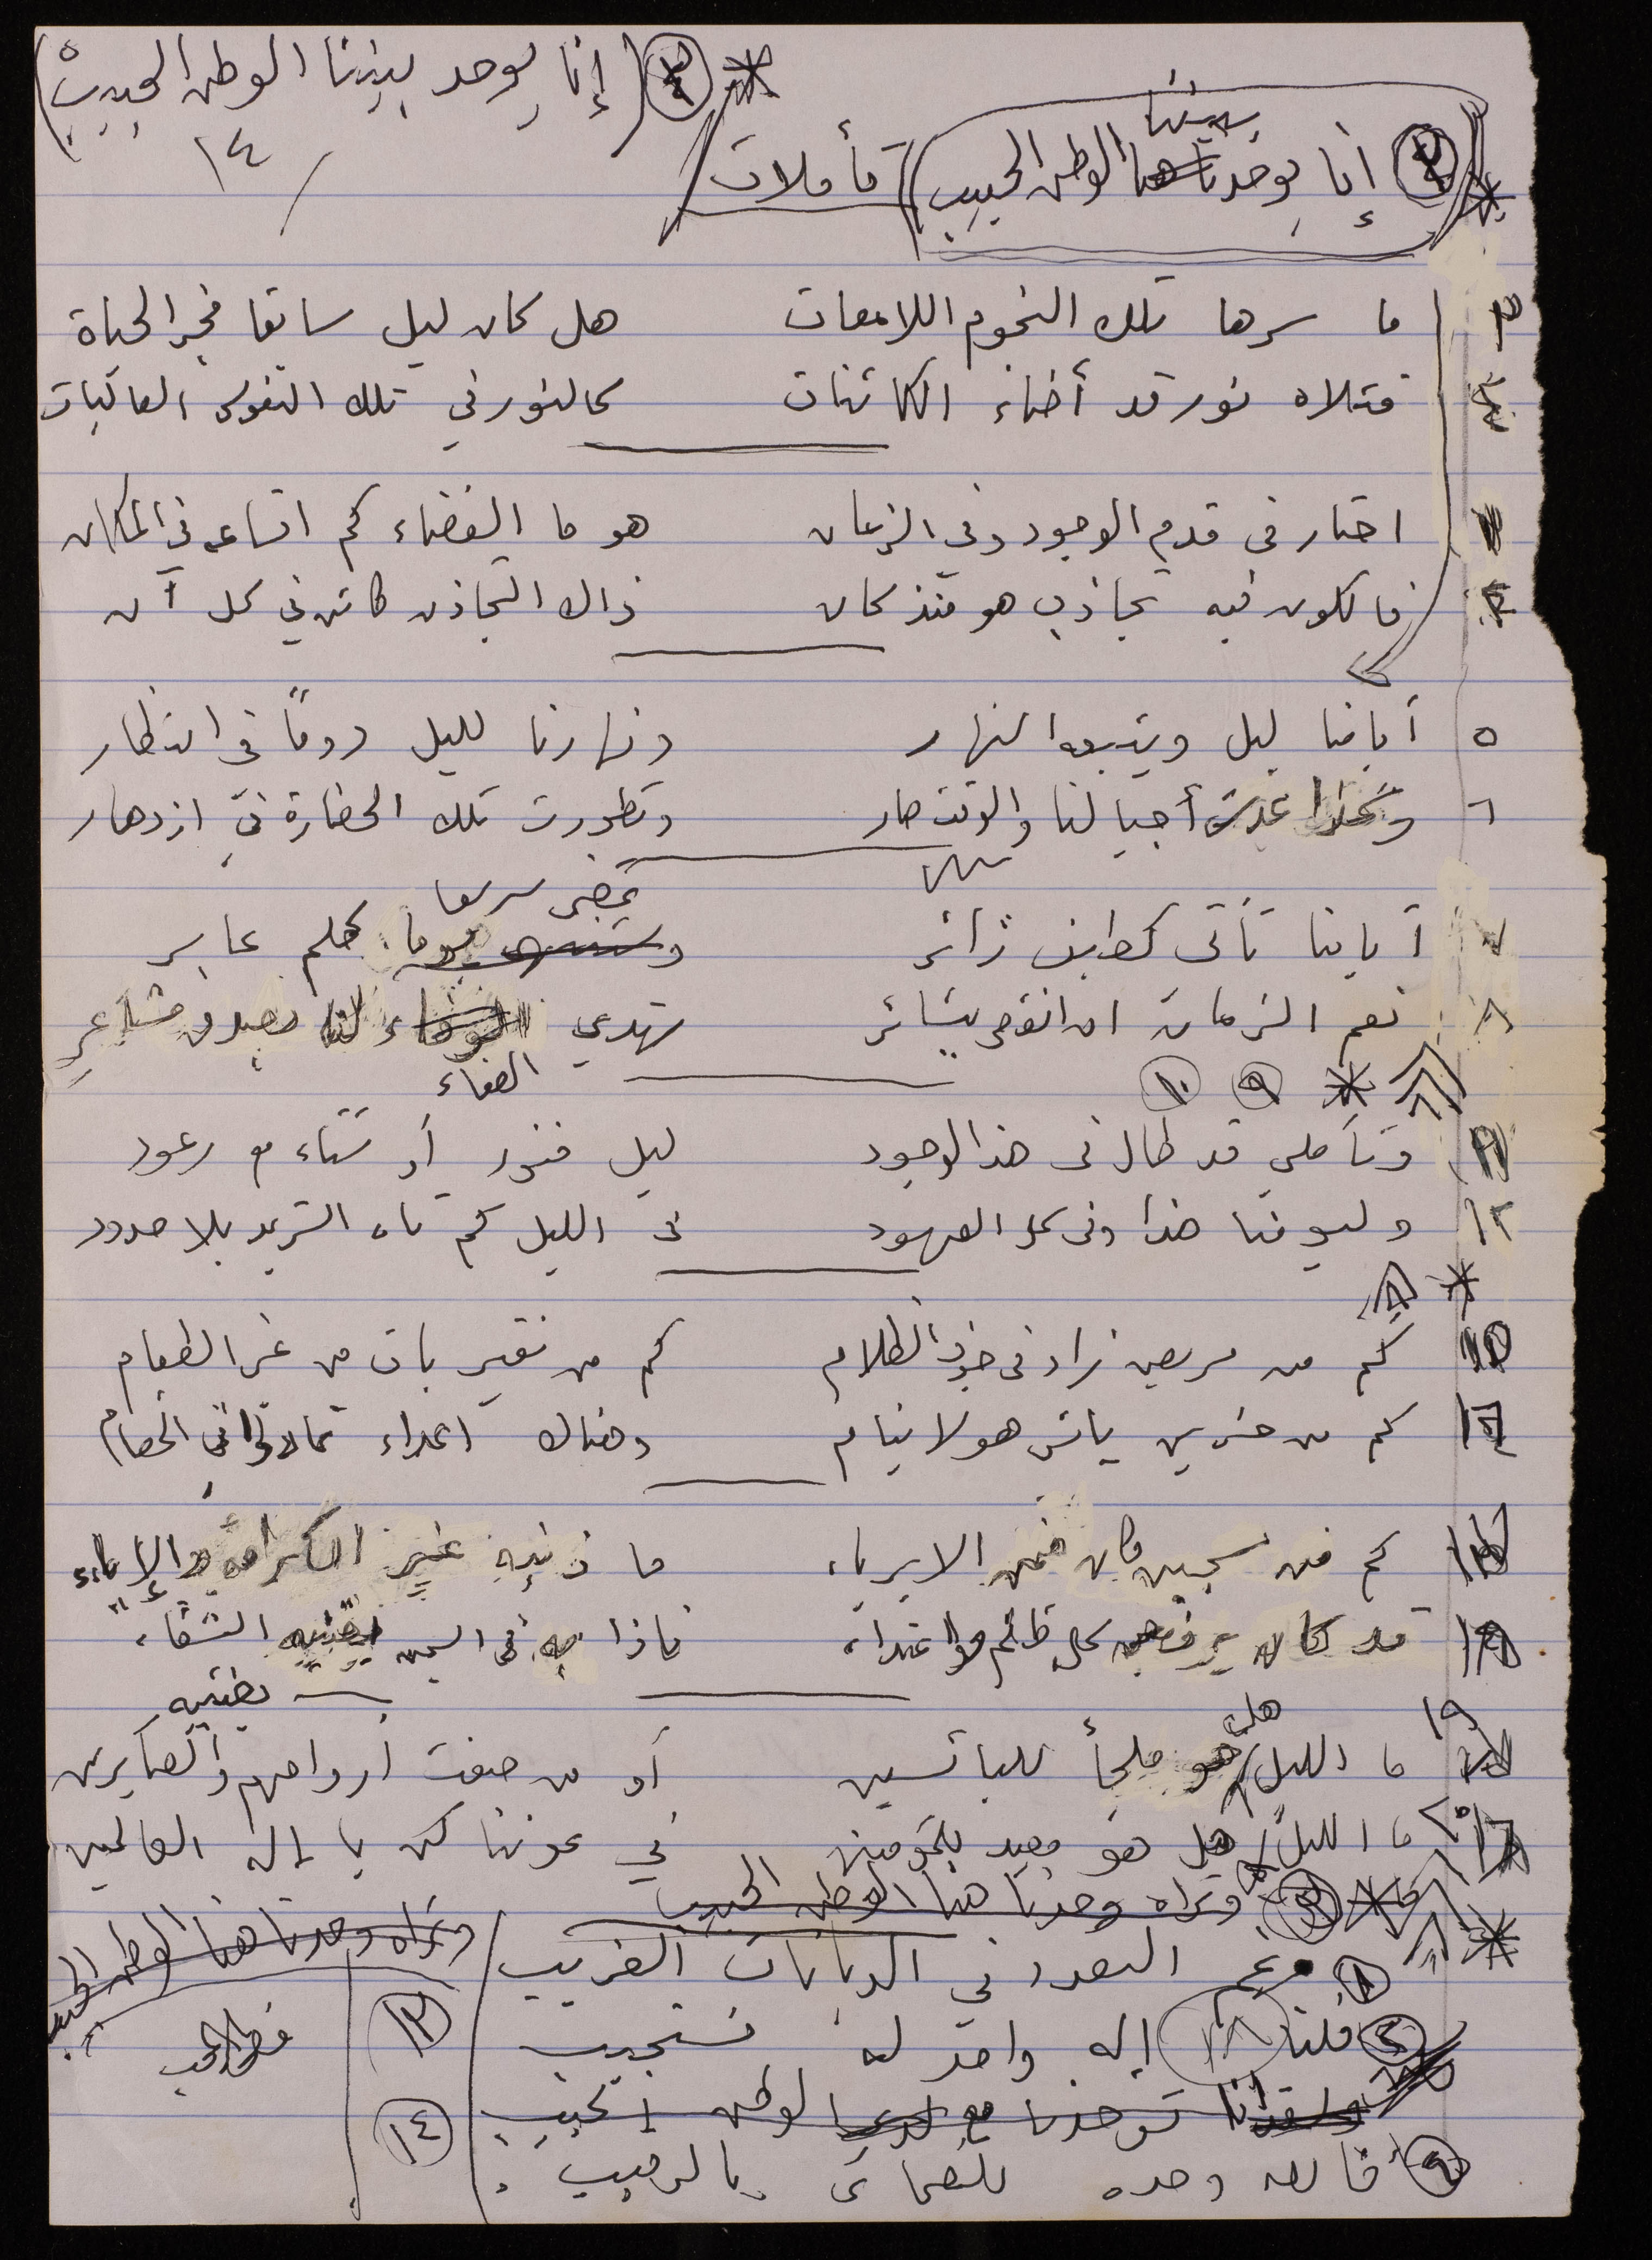 * ٣ (إنا يوحد بيننا الوطن الحبيب)
١٤
* ٢ إنا يوحدنا هنا الوطن الحبيب) تأملات
بيننا
٣ ما سرها تلك النجوم اللامعات هل كان ليل سابقا فجر الحياة
٤ فتلاه نور قد أضاء الكائنات كالنور في تلك النفوس العاليات
١ احتار في قدم الوجود وفي الزمان هو ما الفضاء كم اتساعه في المكان
٢ فالكون فيه تجاذب هو منذ كان ذاك التجاذب كائن في كل آن
٥ أيامنا ليل ويتبعه النهار ونهارنا لليل دوماً في انتظار
٦ وكذا غدت أجيالنا والوقت صار وتطورت تلك الحضارة في ازدهار
تمضي سريعا
٧ أيامنا تأتي كطيف زائر وستنتهي يوما كحلم عابر
٨ نعم الزمان ان انقضى ببشائر تهدي الوفاء لنا بصدق مشاعر
الصفاء
* ٩ ١٠
١١ وتأملي قد طال في هذا الوجود ليل فنور أو شتاء مع رعود
١٢ وليومنا هذا وفي كل العهود في الليل كم تاه الشريد بلا حدود
*
١٥ كم من مريض زاد في خوف الظلام كم من فقير بات من غير الطعام
١٦ كم من حزين يائس هو لا ينام وهناك اعداء تمادوا في الخصام
١٧ كم من سجين كان من الابرياء ما ذنبه غير الكرامة والإباء
١٨ قد كان يرفض كل ظلم واعتداء فاذا به في السجن يضنيه الشقاء
يضنيه
١٩ ما الليل هل هو ملجأ للبائسين أو من صفت ارواحهم والصابرين
٢٠ ما الليل هل هو معبد للمؤمنين في عوننا كن يا إله العالمين
* وتراه وحدنا هنا الوطن الحبيب
* ١ رغم التعدد في الديانات الغريب
وتراه وحدنا هنا الوطن الحبيب
٢ فلنا إله واحد له نستجيب ١٣
توحدنا مع الوطن الحبيب ١٤
فالله وحده للصلاة بالرحيب